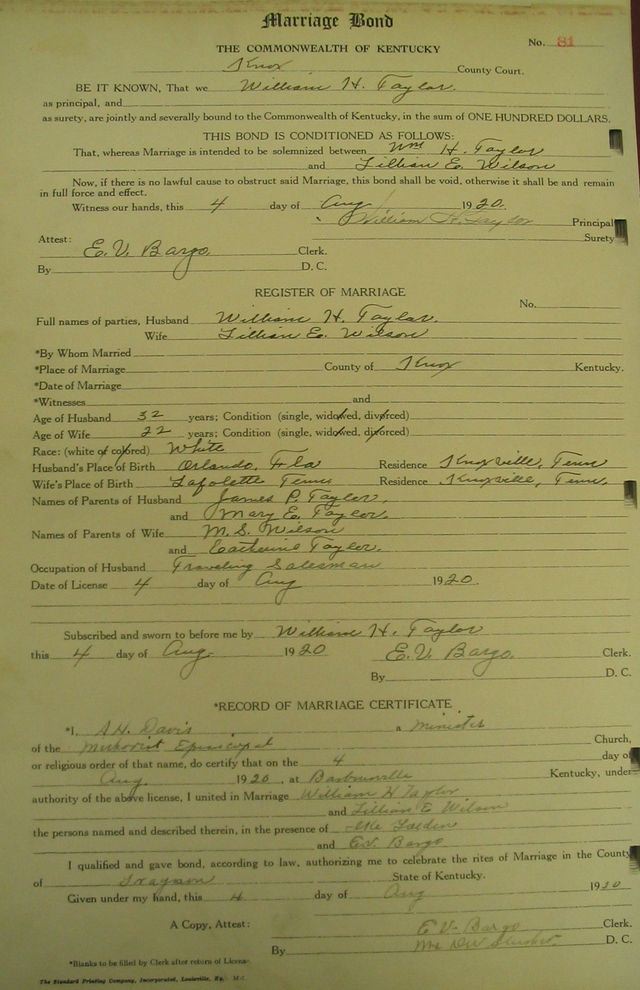 Marriage Bond
No. 81
THE COMMONWEALTH OF KENTUCKY
Knox County Court.
BE IT KNOWN, That we William H. Taylor.
as principal, and
as surety, are jointly and severally bound to the Commonwealth of Kentucky, in the sum of ONE HUNDRED DOLLARS.
THIS BOND IS CONDITIONED AS FOLLOWS:
That, whereas Marriage is intended to be solemnized between Wm H. Taylor
and Lillian E. Wilson
Now, if there is no lawful cause to obstruct said Marriage, this bond shall be void, otherwise it shall be and remain
in full force and effect.
Witness our hands, this 4 day of Aug 1920.
William H. Taylor Principal
Surety
Attest:
E. V. Bargo Clerk.
By D. C.
REGISTER OF MARRIAGE
No.
Full names of parties, Husband William H. Taylor.
Wife Lillian E. Wilson
*By Whom Married
*Place of Marriage County of Knox Kentucky.
*Date of Marriage
*Witnesses and
Age of Husband 32 years; Condition (single, widowed, divorced)
Age of Wife 22 years; Condition (single, widowed, divorced)
Race: (white or colored) White
Husband's Place of Birth Orlando, Fla Residence Knoxville, Tenn
Wife's Place of Birth Lafolette Tenn Residence Knoxville, Tenn.
Names of Parents of Husband James P. Taylor,
and Mary E. Taylor.
Names of Parents of Wife M. S. Wilson
and Catherine Taylor.
Occupation of Husband Traveling Salesman
Date of License 4 day of Aug 1920.
Subscribed and sworn to before me by William H. Taylor
this 4 day of Aug. 1920 E. V. Bargo. Clerk.
By D. C.
*RECORD OF MARRIAGE CERTIFICATE
*I, Davis a minister
of the Methodist Episcopal Church,
or religious order of that name, do certify that on the 4 day of
Aug. 1920, at Barbourville Kentucky, under
authority of the above license, I united in Marriage William H Taylor
and Lillian E Wilson
the persons named and described therein, in the presence of
and E.V. Bargo
I qualified and gave bond, according to law, authorizing me to celebrate the rites of Marriage in the County
of Grayson State of Kentucky.
Given under my hand, this 4 day of Aug 1920
A Copy, Attest: E V- Bargo Clerk.
By D. C.
*Blanks to be filled by Clerk after return of License.
The Standard Printing Company, Incorporated, Louisville, Ky.